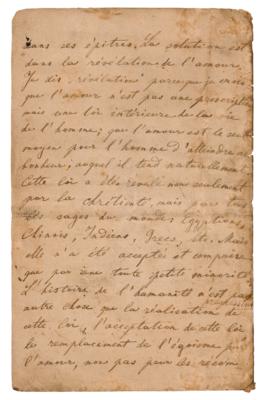 dans ses épitres. La solution est
dans la révélation de l'amour.
Je dis "révélation" parce que je crois
que l'amour n'est pas une prescription
mais une loi intérieure de la vie
de l'homme; que l'amour est le seul
moyen pour l'homme d'atteindre au
bonheur; auquel il tend naturellement.
Cette loi a été révélé non seulement
par la Chrétienté, mais par tous
les sages du monde: Egyptiens,
Chinois, Indiens, Grecs, etc. Mais
elle n'a été acceptée et comprise
que par une toute petite minorité
L'histoire de l'humanité n'est pas
autre chose que la réalisation de
cette loi, l'acceptation de cette loi
le remplacement de l'égoïsme par
l'amour, non pas pour les récom